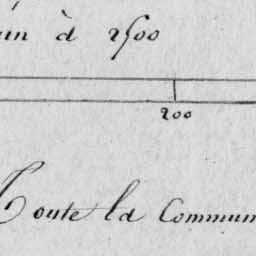 un à 2500
200
Toute la Commun